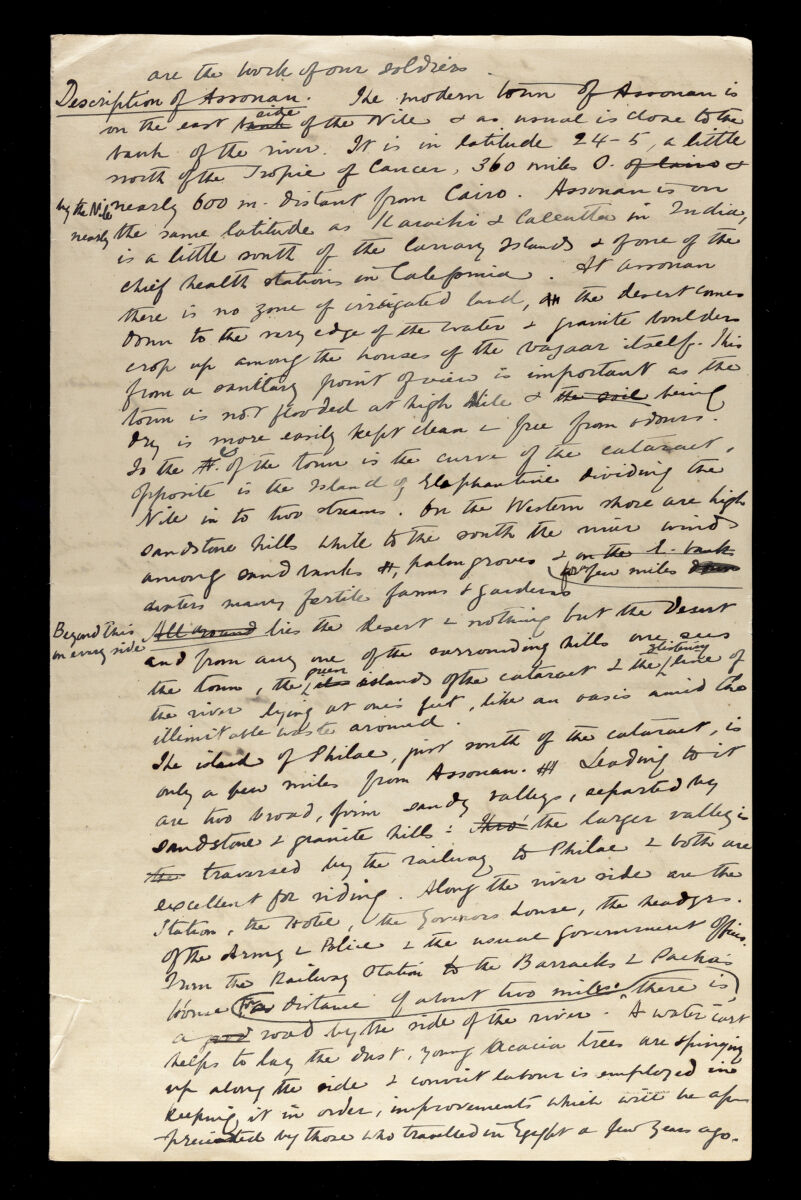 are the work of our soldiers.
Description of Assouan. The modern town of Assouan is
on the east bank side of the Nile & as usual is close to the
bank of the river. It is in latitude 24-5, a little
north of the Tropic of Cancer, 360 miles S. of Cairo &
by the Nile nearly 600 m. distant from Cairo. Assouan is on
nearly the same latitude as Karachi & Calcutta in India,
is a little south of the Canary Islands & of one of the
chief health stations in California. At Assouan
there is no zone of irrigated land, the desert comes
down to the very edge of the water & granite boulders
crop up among the houses of the bazaar itself. This
from a sanitary point of view is important as the
town is not flooded at high Nile & the soil being
dry is more easily kept clean & free from odours.
To the S. of the town is the curve of the cataract,
opposite is the Island of Elephantine dividing the
Nile in to two streams. On the Western shore are high
sandstone hills while to the south the river winds
among sand banks, palm groves & on the E. bank
for few miles down
dotters many fertile farms & gardens
Beyond this
on every side All around lies the Desert & nothing but the Desert
and from any one of the surrounding hills one sees
the town, the its green islands of the cataract & the glistening line of
the river lying at one's feet, like an oasis amid the
illimitable waste around.
The island of Philae, just south of the cataract, is
only a few miles from Assouan. Leading to it
are two broad, firm sandy valleys, separated by
sandstone & granite hills: Thro' the larger valley is
the traversed by the railway to Philae & both are
excellent for riding. Along the river side are the
Station, the Hotel, the Governors house, the headqrs.
of the Army & Police & the usual government offices.
From the Railway Station to the Barracks & Pacha's
house for a distance of about two miles there is
a good road by the side of the river. A water cart
helps to lay the dust, young Acacia trees are springing
up along the side & convict labour is employed in
keeping it in order, improvements which will be ap-
preciated by those who travelled in Egypt a few years ago.